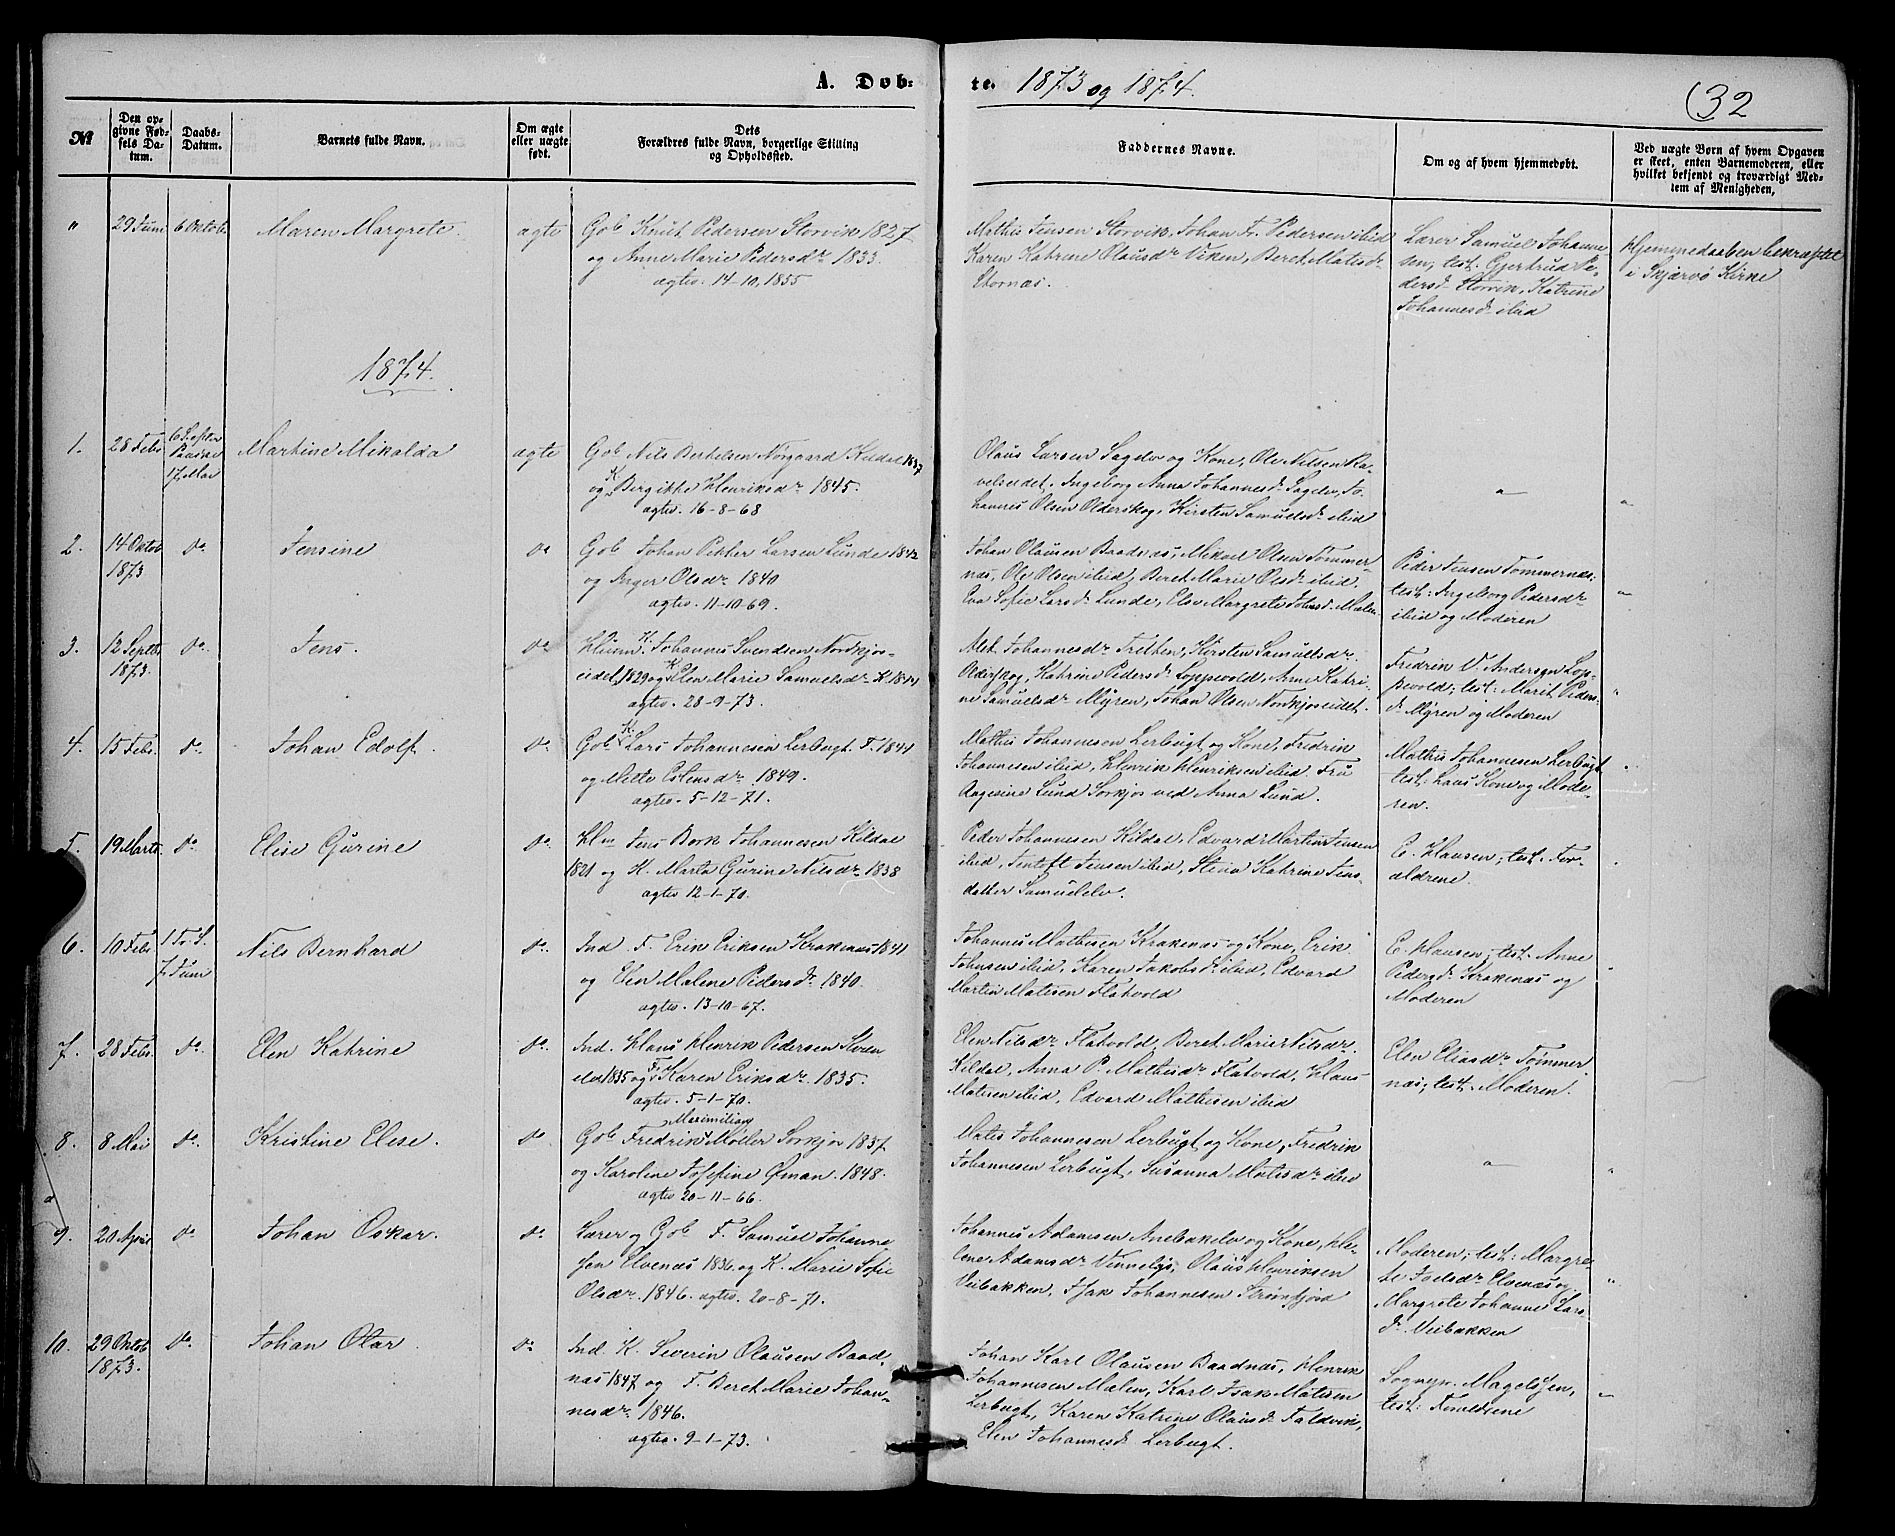 A. Døb-
te. 1873 og 1874.
32
№
Den op-
givne Fød-
sels Da-
tum.
Daabs-
Datum.
Barnets fulde Navn.
Om ægte
eller uægte
født.
Dets
Forældres fulde Navn, borgerlige Stilling
og Opholdssted.
Faddernes Navne.
Om og af hvem hjemmedøbt.
Ved uægte Børn af hvem Opgaven
er skeet, enten Barnemoderen, eller
hvilket bekjendt og troværdigt Med-
lem af Menigheden,
" 29 Juni 6 Oktob. Maren Margrete. ægte
Gob Knut Pedersen Storvik 1827
og Anne Marie Pedersdr 1833.
agtev. 14-10, 1855
Mathis Jensen Storvik, Johan Fr. Pedersen ibid
Karen Katrine Olausdr Viken, Beret Matisdr
Stornæs.
Lærer Samuel Johanne-
sen, test. Gjertrud Pe-
dersdr Storvik, Katrine
Johannesdr ibid
Hjemmedaaben bekræftet
i Skjærvø Kirke
1874.
1. 28 Febr 6 S. efter
Paaske
17 Mai
Martine Mikalda ægte
Gob Nils Bertelsen Norgaard Kildal 1837
og K. Bergitte Henriksdr 1845.
agtev. 16-8-68
Olaus Larsen Sagelv og Kone, Ole Nilsen Ra-
velseidet, Ingeborg Anna Johannesdr Sagelv, Jo-
hannes Olsen Olderskog, Kirsten Samuelsdr ibid
2. 14 Oktob
1873
do Jensine do
Gob Johan Petter Larsen Lunde 1842
og Inger Olsdr 1840
agtev. 11-10-69.
Johan Olausen Baadnæs, Mikael Olsen Tømmer-
næs, Ole Olsen ibid, Beret Marie Olsdr ibid,
Eva Sofie Larsdr Lunde, Elen Margrete Johnsdr Mælen
Peder Jensen Tømmernæs;
test: Ingeborg Pedersdr
ibid og Moderen
3. 12 Septbr
1873.
do. Jens. do
Husm. K. Johannes Svendsen Nordkjos-
eidet, 1829 og K. Elen Marie Samuelsdr K 1841
agtev. 28-9-73.
Alet Johannesdr Tretten, Kirsten Samuelsdr
Olderskog, Katrine Pedersdr Loppevold, Anne Katri-
ne Samuelsdr Myren, Johan Olsen Nordkjoseidet.
Fredrik V. Andersen Lop-
pevold; test: Marit Peders-
dr Myren og Moderen
4. 15 Febr. do Johan Edolf. do.
Gob K. Lars Johannesen Lerbugt. F. 1841
og Mette Estensdr 1849.
agtev. 5-12-71.
Mathis Johannesen Lerbugt og Kone, Fredrik
Johannesen ibid, Henrik Henriksen ibid. Fru
Aagesine Lund Sørkjos ved Anna Lund.
Mathis Johannesen Lerbugt
test: hans Kone og Mode-
ren.
5. 19 Marts. do. Elise Gurine do
Hm Jens Bork Johannesen Kildal
1821 og K. Marta Gurine Nilsdr 1838
agtev 12-1-70.
Peder Johannesen Kildal, Edvard Martin Jensen
ibid, Jentoft Jensen ibid, Stina Katrine Jens-
datter Samuelelv.
E. Hansen; test. For-
ældrene.
6. 10 Febr 1 Tr. S.
7 Juni
Nils Bernhard do.
Ind. F. Erik Eriksen Krakenæs 1841
og Elen Malene Pedersdr 1840.
agtev. 13-10-67.
Johannes Mathisen Krakenæs og Kone, Erik
Johnsen ibid, Karen Jakobsdr ibid, Edvard
Martin Matisen Flatvold
E. Hansen; test. Anne
Pedersdr Krakenæs og
Moderen
7. 28 Febr. do. Elen Katrine do.
Ind. Hans Henrik Pedersen Steren
eld 1835 og F. Karen Eriksdr 1835.
agtev. 5-1-70.
Elen Nilsdr Flatvold. Beret Marie Nilsdr
Kildal, Anna P. Mathisdr Flatvold, Hans
Matisen ibid, Edvard Mathisen ibid
Elen Eliasdr Tømmer-
næs; test. Moderen.
8. 8 Mai do. Kristine Elese. do.
Gob Fredrik Maximilian Møller Sørkjos 1837
og Karoline Josefine Øman. 1848.
agtev 20-11-66.
Matis Johannesen Lerbugt og Kone, Fredrik
Johannesen Lerbugt, Susanna Matisdr ibid
9. 20 April do. Johan Oskar. do.
Lærer og Gob F. Samuel Johanne-
sen Elvenæs 1836 og K. Marie Sofie
Olsdr. 1846. agtev. 20-8-71.
Johannes Adamsen Anebakelv og Kone, He-
lene Adamsdr Vinnelys, Olaus Henriksen
Veibakken, Isak Johannesen Strømfjord
Moderen; test: Margre-
te Joelsdr Elvenæs og
Margrete Johanne Lars-
dr Veibakken
10. 29 Oktob
1873.
do. Johan Olar. do.
Ind. K. Severin Olausen Baad-
næs 1847 og F. Beret Marie Johan-
nesdr 1846.
agtev. 9-1-73.
Johan Karl Olausen Baadnæs, Henrik
Johannesen Mælen, Karl Isak Matisen
Lerbugt, Karen Katrine Olausdr Faldvik,
Elen Johannesdr Lerbugt.
Sognepr. Magelssen,
test: Forældrene